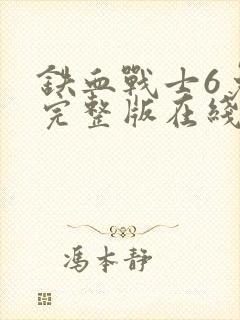 鉄血戰士6
完整版在綫
馮本靜